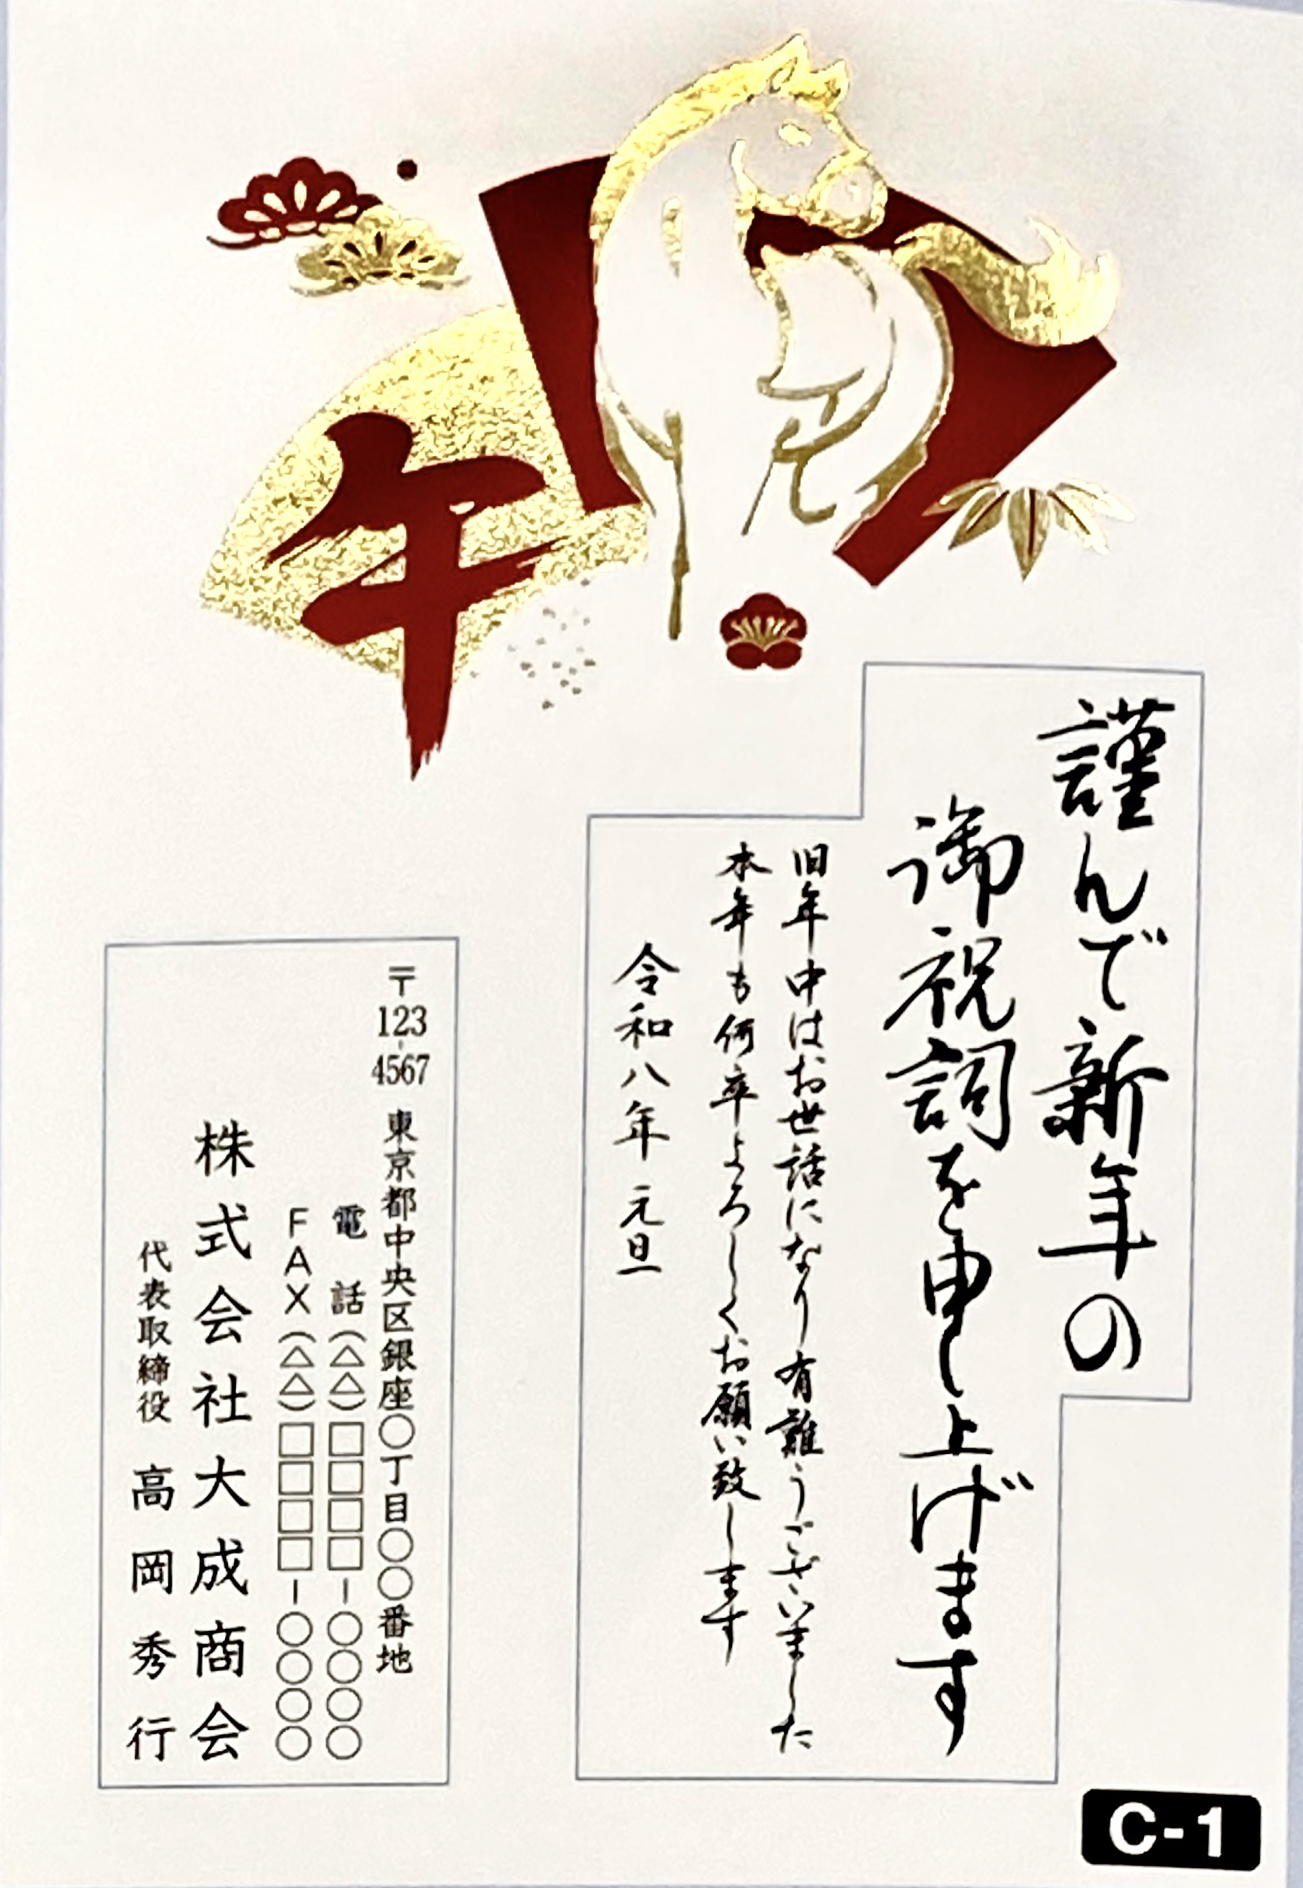 午
謹んで新年の
御祝詞を申し上げます
旧年中はお世話になり有難うございました
本年も何卒よろしくお願い致します
令和八年 元旦
〒123-4567 東京都中央区銀座○丁目○○番地
電話(△△)□□□□-○○○○
FAX(△△)□□□□-○○○○
株式会社大成商会
代表取締役 高岡秀行
C-1